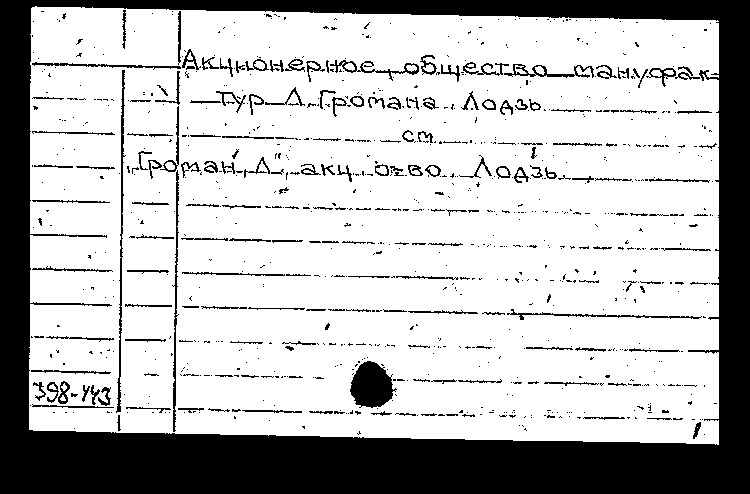 Акционерное общество мануфак-
тур Л. Громана. Лодзь
см.
„Громан, Л", акц. о-во. Лодзь.
398-443